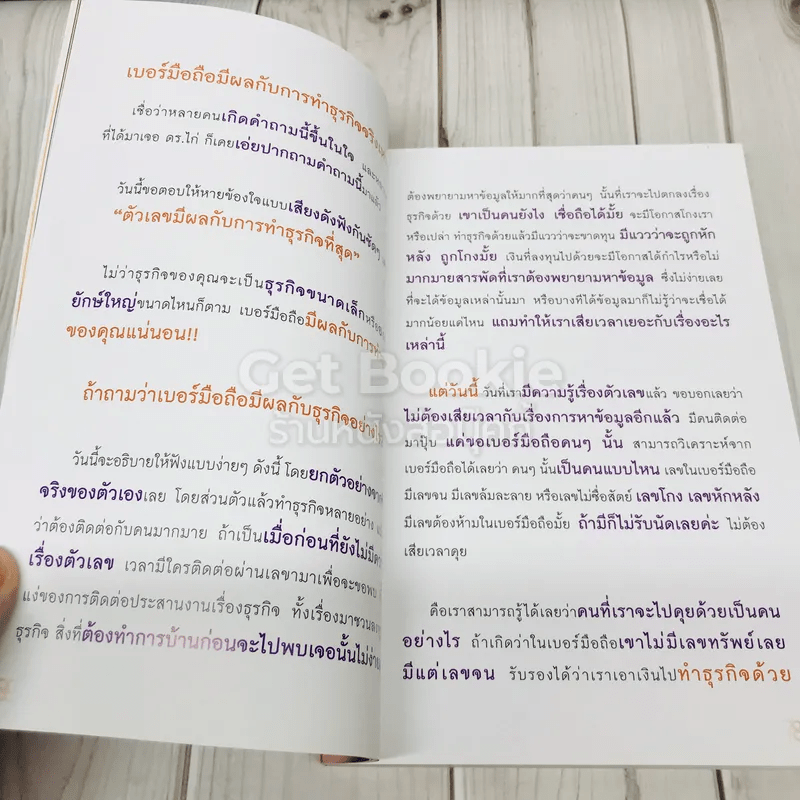 เบอร์มือถือมีผลกับการทำธุรกิจจริง
เชื่อว่าหลายคนเกิดคำถามนี้ขึ้นในใจ และ
ที่ได้มาเจอ ดร.ไก่ ก็เคยเอ่ยปากถามคำถามนี้มาแล้ว
วันนี้ขอตอบให้หายข้องใจแบบเสียงดังฟังกันชัดๆ
"ตัวเลขมีผลกับการทำธุรกิจที่สุด"
ไม่ว่าธุรกิจของคุณจะเป็นธุรกิจขนาดเล็กหรือ
ยักษ์ใหญ่ขนาดไหนก็ตาม เบอร์มือถือมีผลกับการ
ของคุณแน่นอน!!
ถ้าถามว่าเบอร์มือถือมีผลกับธุรกิจอย่าง
วันนี้จะอธิบายให้ฟังแบบง่ายๆ ดังนี้ โดยยกตัวอย่าง
จริงของตัวเองเลย โดยส่วนตัวแล้วทำธุรกิจหลายอย่าง
ว่าต้องติดต่อกับคนมากมาย ถ้าเป็นเมื่อก่อนที่ยังไม่มี
เรื่องตัวเลข เวลามีใครติดต่อผ่านเลขามาเพื่อจะขอพบ
แง่ของการติดต่อประสานงานเรื่องธุรกิจ ทั้งเรื่องมาชวน
ธุรกิจ สิ่งที่ต้องทำการบ้านก่อนจะไปพบเจอนั้นไม่ง่าย
ต้องพยายามหาข้อมูลให้มากที่สุดว่าคนๆ นั้นที่เราจะไปตกลงเรื่อง
ธุรกิจด้วย เขาเป็นคนยังไง เชื่อถือได้มั้ย จะมีโอกาสโกงเรา
หรือเปล่า ทำธุรกิจด้วยแล้วมีแววว่าจะขาดทุน มีแววว่าจะถูกหัก
หลัง ถูกโกงมั้ย เงินที่ลงทุนไปด้วยจะมีโอกาสได้กำไรหรือไม่
มากมายสารพัดที่เราต้องพยายามหาข้อมูล ซึ่งไม่ง่ายเลย
ที่จะได้ข้อมูลเหล่านั้นมา หรือบางทีได้ข้อมูลมาก็ไม่รู้ว่าจะเชื่อได้
มากน้อยแค่ไหน แถมทำให้เราเสียเวลาเยอะกับเรื่องอะไร
เหล่านี้
แต่วันนี้ วันที่เรามีความรู้เรื่องตัวเลขแล้ว ขอบอกเลยว่า
ไม่ต้องเสียเวลากับเรื่องการหาข้อมูลอีกแล้ว มีคนติดต่อ
มาปุ๊บ แค่ขอเบอร์มือถือคนๆ นั้น สามารถวิเคราะห์จาก
เบอร์มือถือได้เลยว่า คนๆ นั้นเป็นคนแบบไหน เลขในเบอร์มือถือ
มีเลขจน มีเลขล้มละลาย หรือเลขไม่ซื่อสัตย์ เลขโกง เลขหักหลัง
มีเลขต้องห้ามในเบอร์มือถือมั้ย ถ้ามีก็ไม่รับนัดเลยค่ะ ไม่ต้อง
เสียเวลาคุย
คือเราสามารถรู้ได้เลยว่าคนที่เราจะไปคุยด้วยเป็นคน
อย่างไร ถ้าเกิดว่าในเบอร์มือถือเขาไม่มีเลขทรัพย์เลย
มีแต่เลขจน รับรองได้ว่าเราเอาเงินไปทำธุรกิจด้วย
Get Bookie
ร้านหนังสือบุ๊คกี้